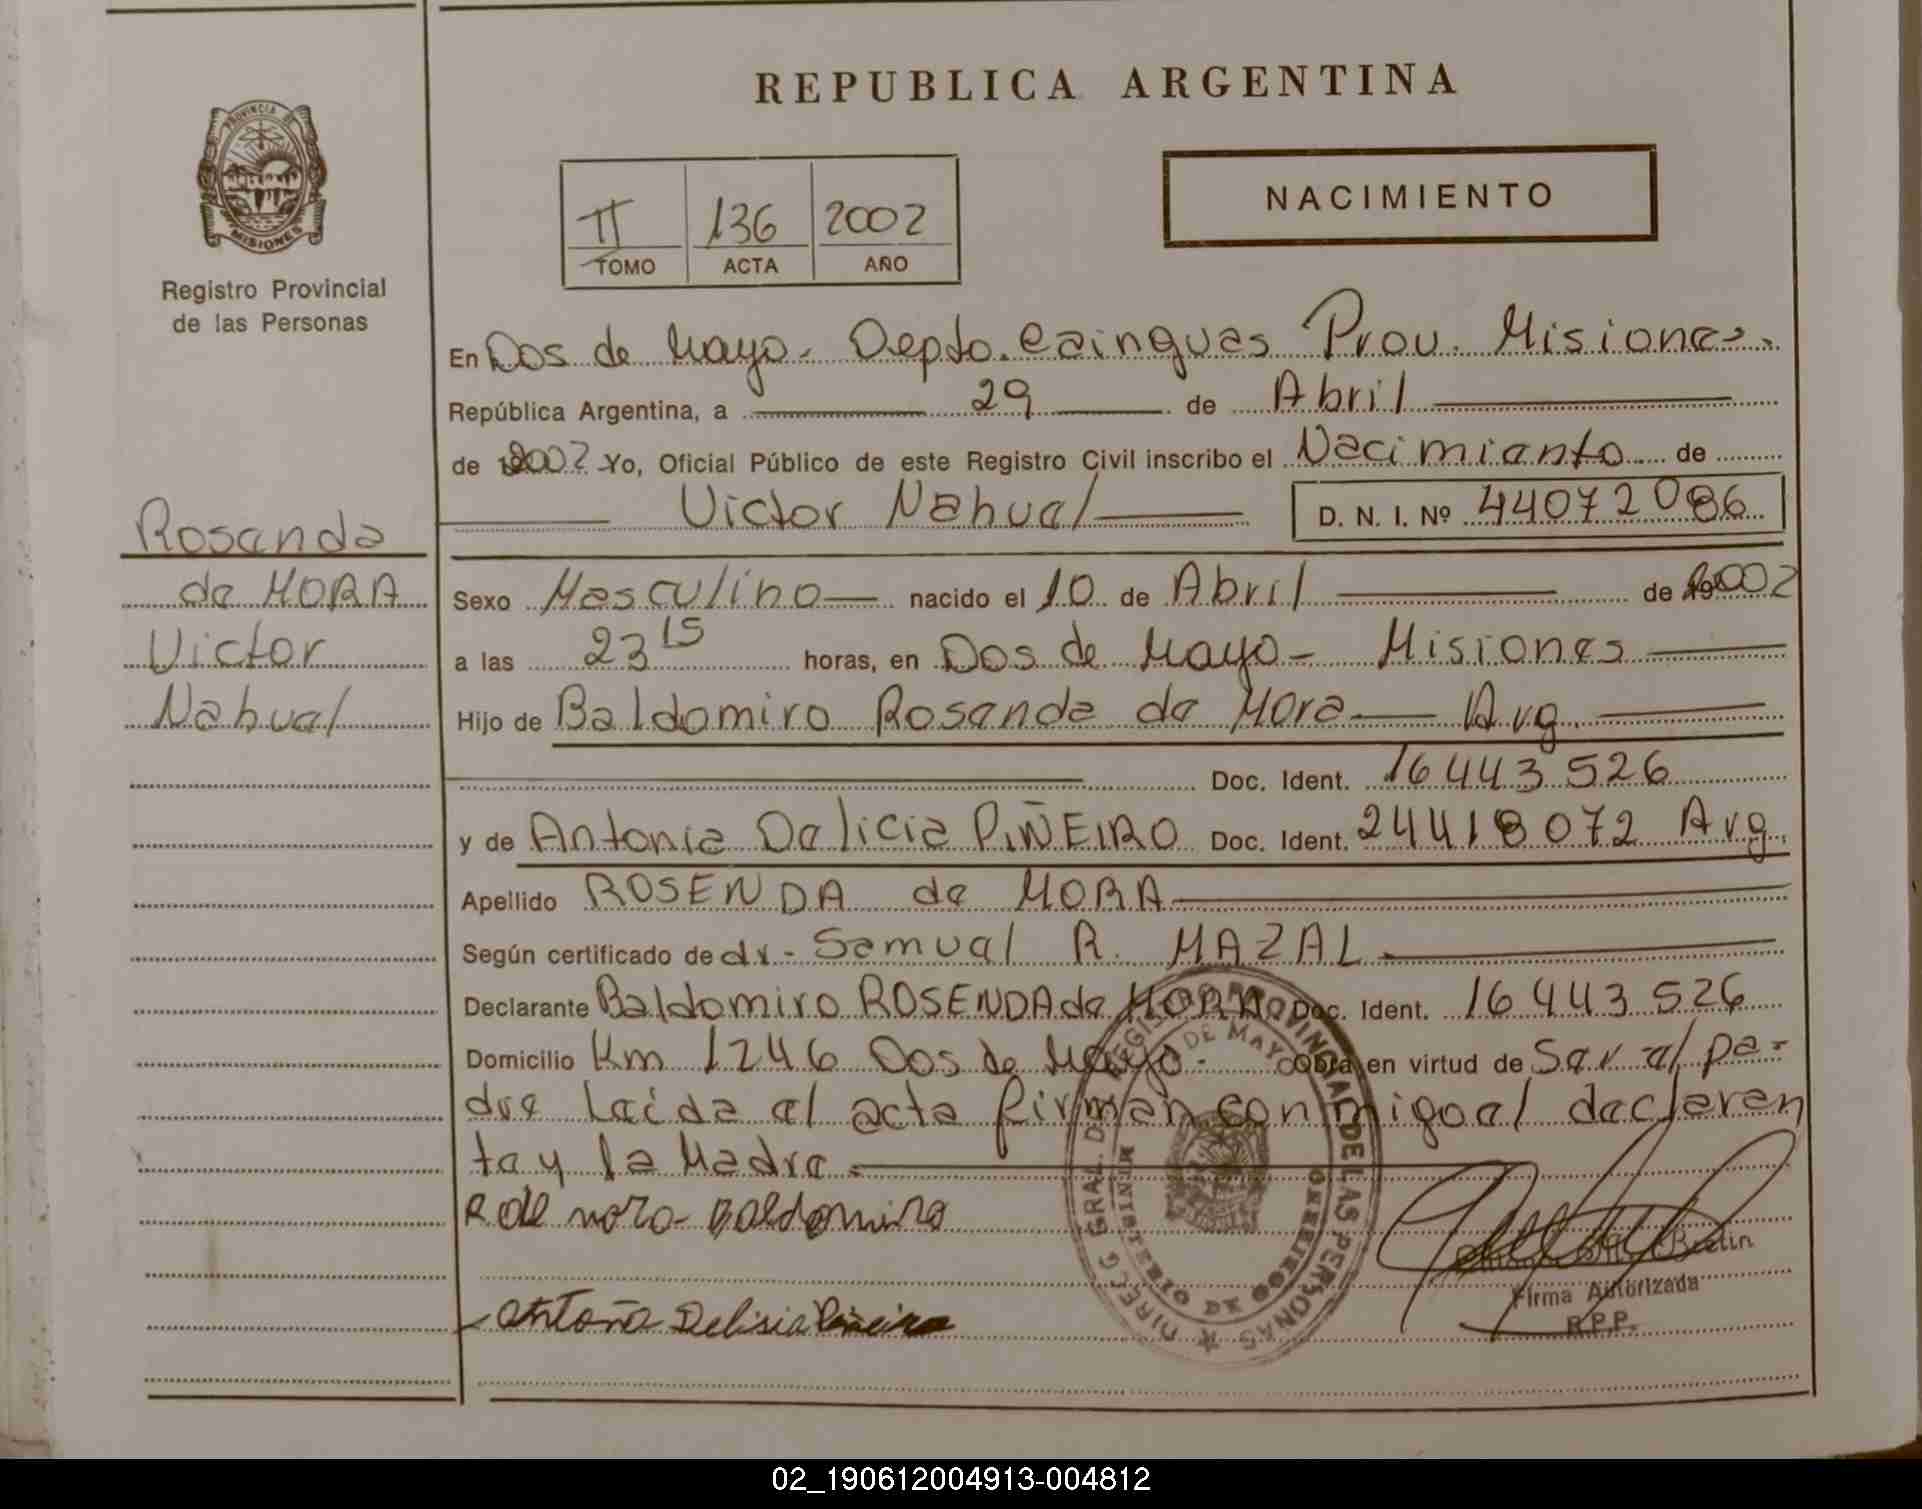 REPUBLICA ARGENTINA
PROVINCIA DE
MISIONES
Registro Provincial
de las Personas
NACIMIENTO
II 136 2002
TOMO ACTA AÑO
En Dos de Mayo. Depto. Cainguas Prov. Misiones.
República Argentina, a 29 de Abril
de 2002 Yo, Oficial Público de este Registro Civil inscribo el Nacimiento de
Victor Nahuel D. N. I. Nº 44072086
Rosenda
de MORA
Victor
Nahuel
Sexo Masculino nacido el 10 de Abril de 2002
a las 23 15 horas, en Dos de Mayo - Misiones
Hijo de Baldomiro Rosenda de Mora Arg.
Doc. Ident. 16443526
y de Antonia Delicia PIÑEIRO Doc. Ident. 24418072 Arg.
Apellido ROSENDA de MORA
Según certificado de dr. Samuel R. MAZAL
Declarante Baldomiro ROSENDA de MORA Doc. Ident. 16443526
Domicilio Km 1246 Dos de Mayo. Obra en virtud de Ser el pa-
dre Leida el acta firman conmigo el declaran
te y la Madre.
R de mora Baldomiro
Antonia Delisia Piñeiro
DIREC. GRAL. DE REGISTRO PROVINCIAL DE LAS PERSONAS
DE MAYO
MINISTERIO DE GOBIERNO
Firma Autorizada
R.P.P.
02_190612004913-004812